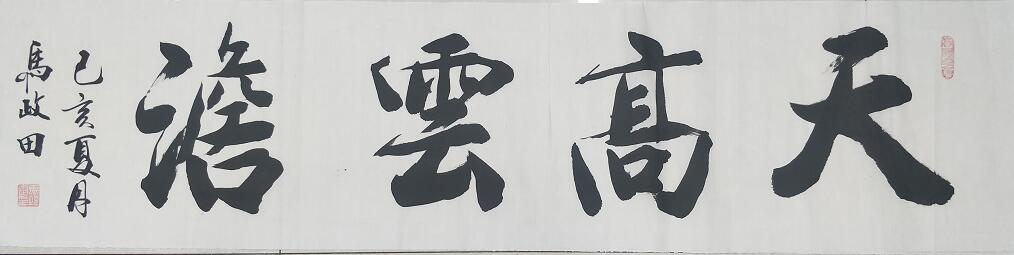 天髙雲澹
己亥夏月
馬政田